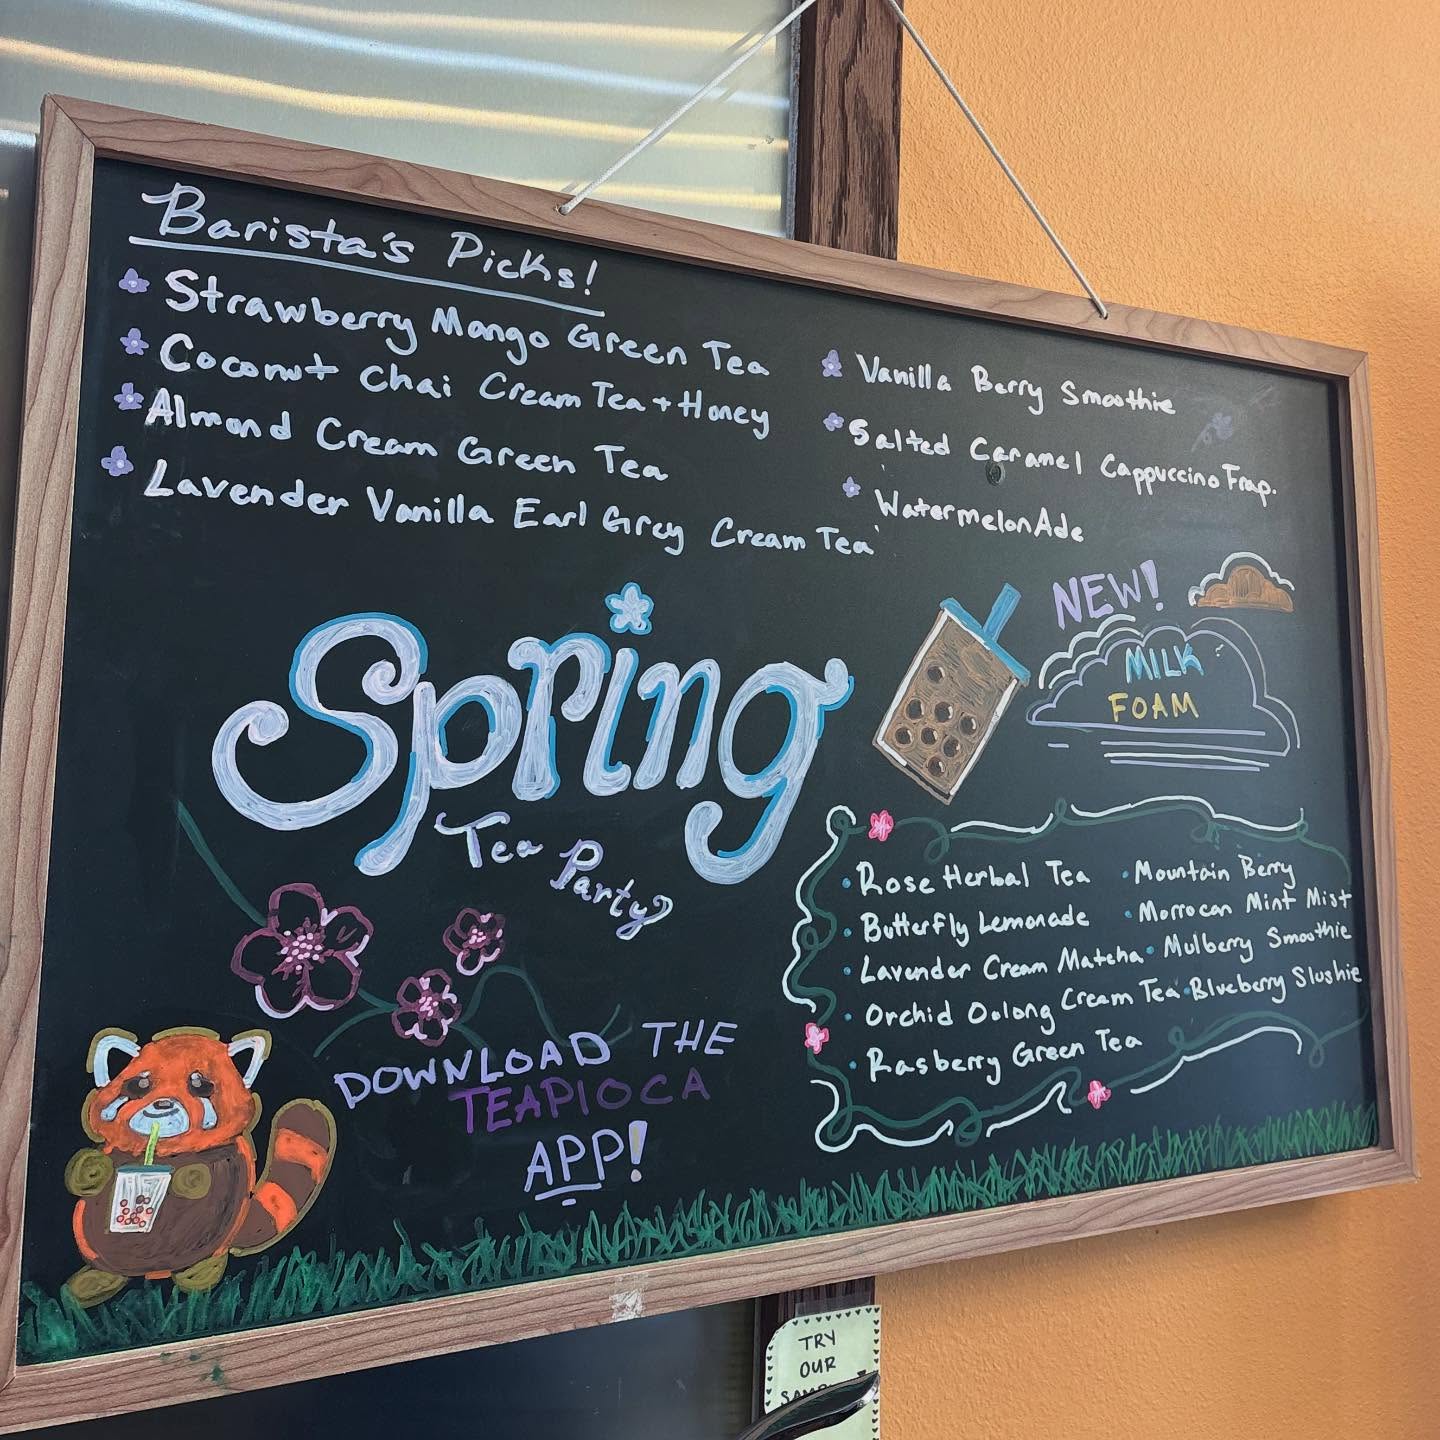 Barista's Picks!
Strawberry Mango Green Tea
Coconut Chai Cream Tea + Honey
Almond Cream Green Tea
Lavender Vanilla Earl Grey Cream Tea
Vanilla Berry Smoothie
Salted Caramel Cappuccino Frap.
WatermelonAde
Spring
Tea Party
NEW!
MILK
FOAM
• Rose Herbal Tea
• Butterfly Lemonade
• Lavender Cream Matcha
• Orchid Oolong Cream Tea
• Rasberry Green Tea
• Mountain Berry
• Morrocan Mint Mist
• Mulberry Smoothie
• Blueberry Slushie
DOWNLOAD THE
TEAPIOCA
APP!
TRY
OUR